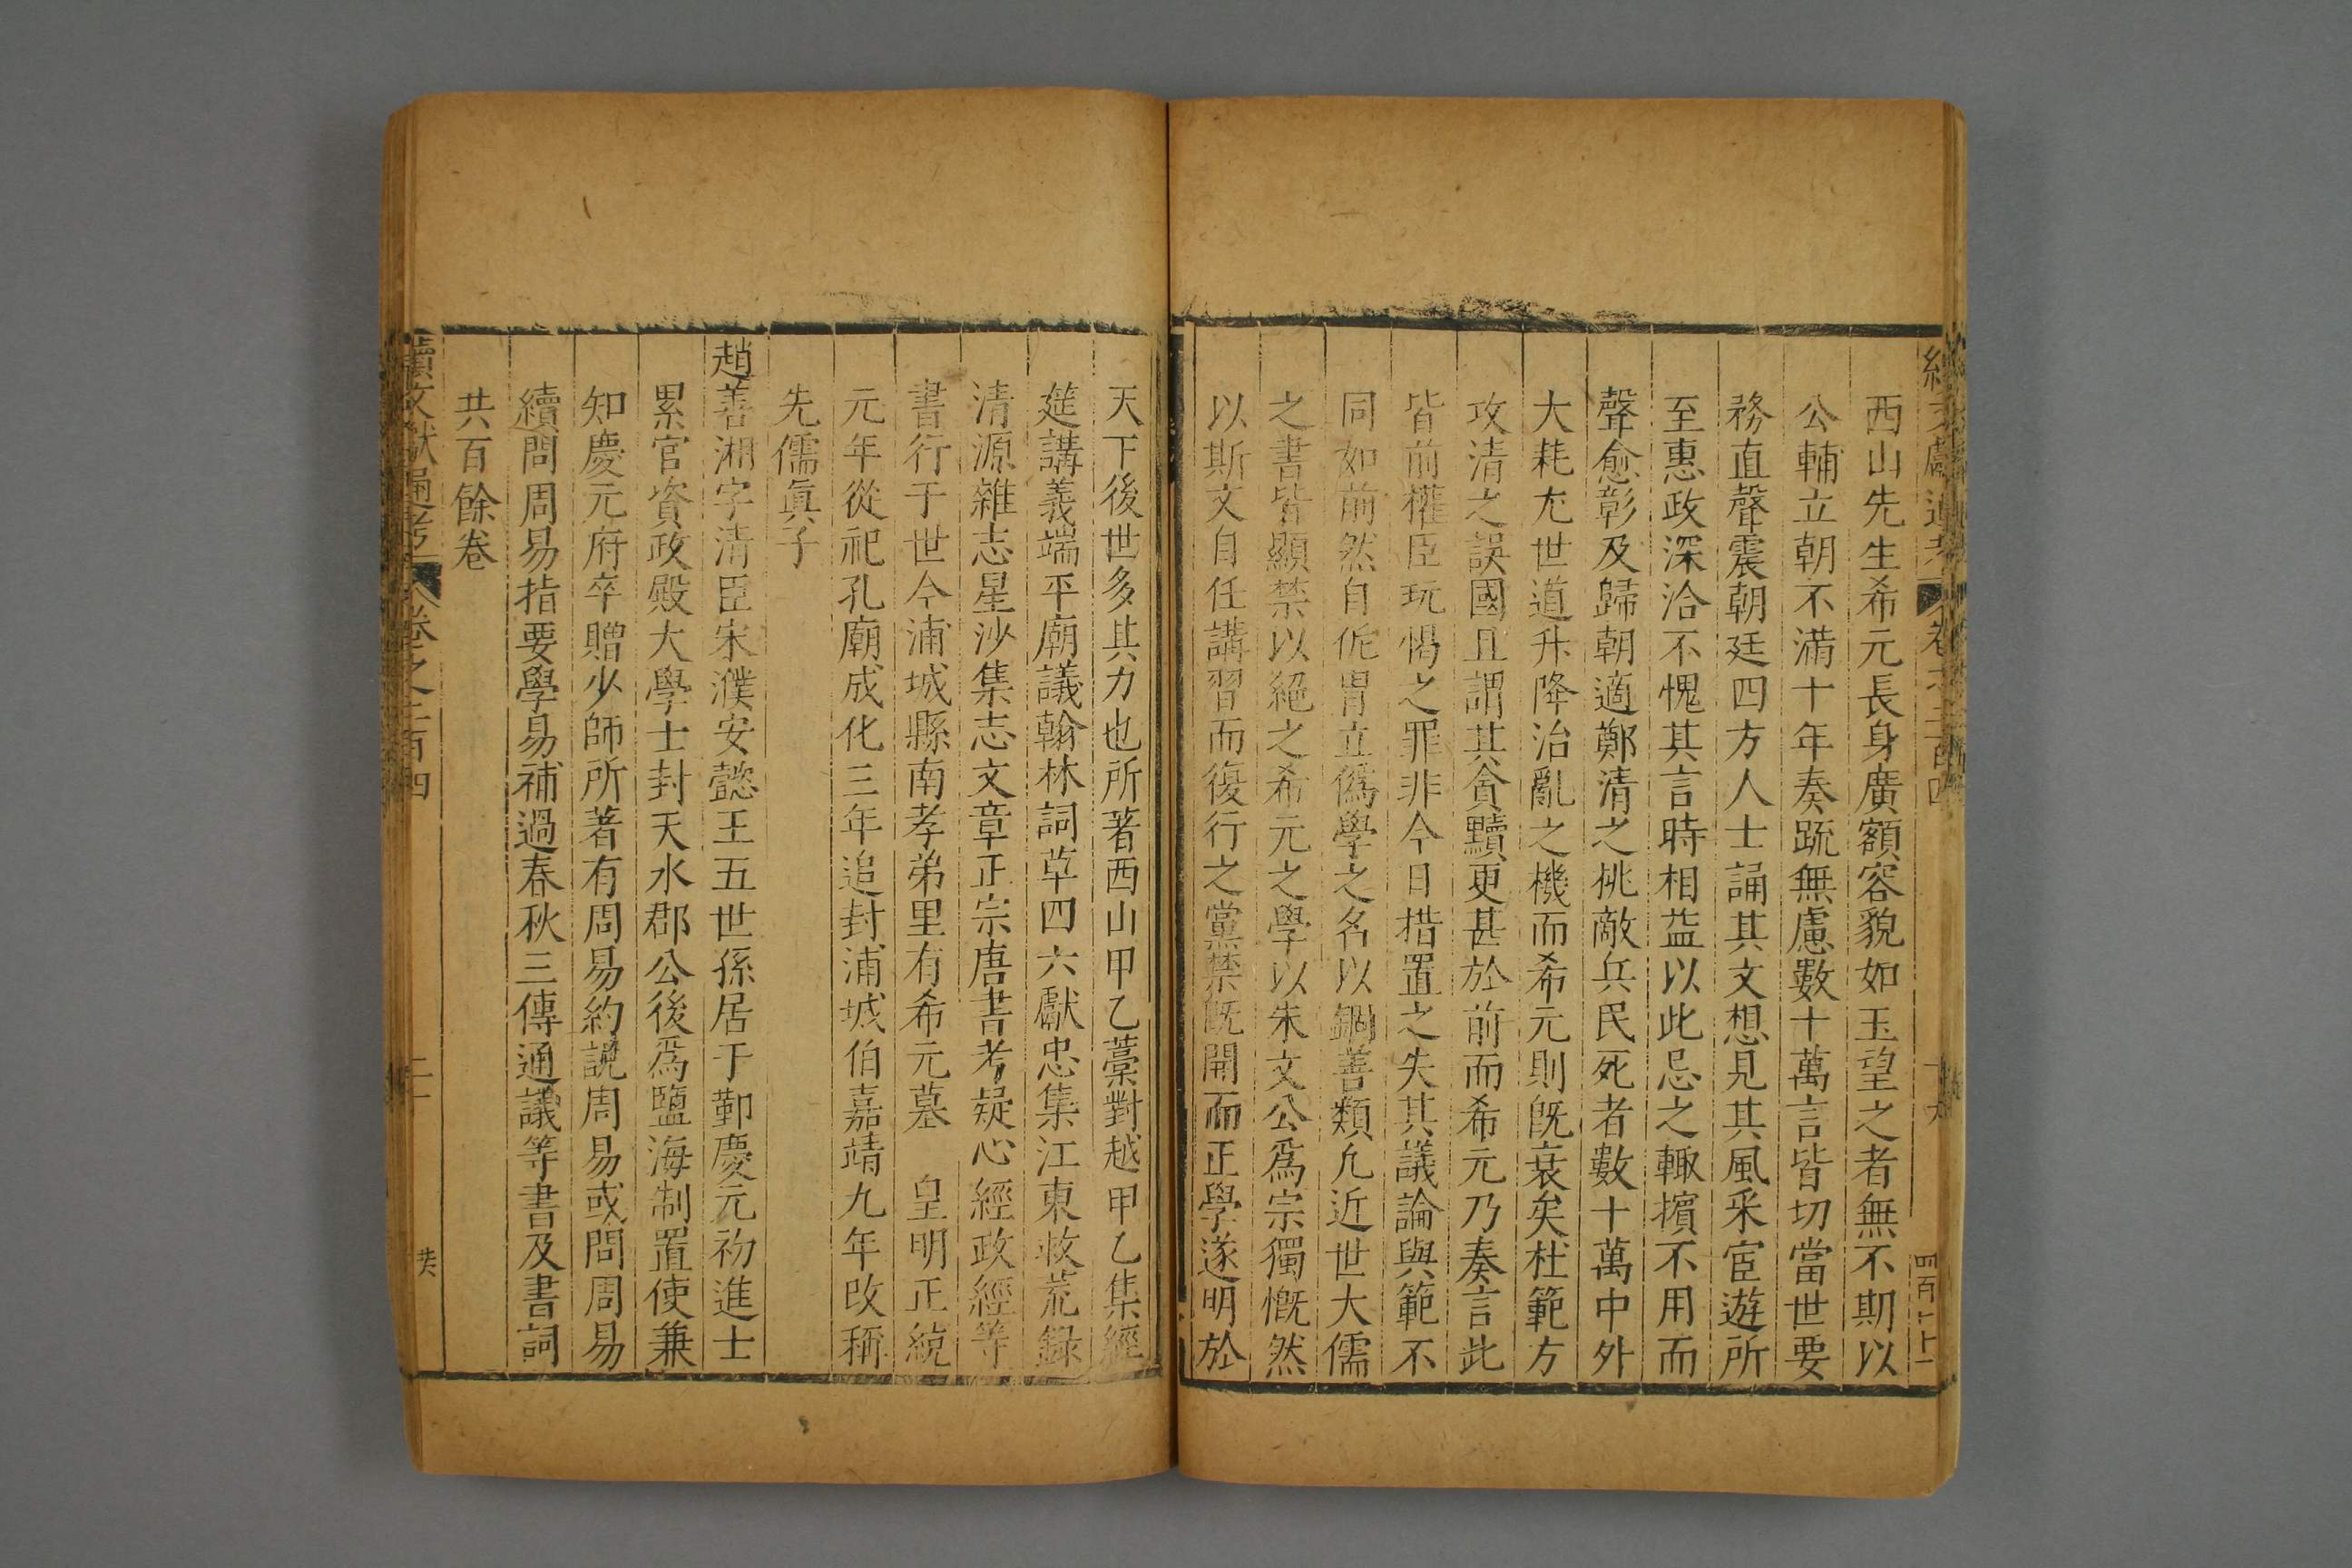 西山先生希元長身廣額容貌如玉望之者無不期以
公輔立朝不滿十年奏䟽無慮數十萬言皆切當世要
務直聲震朝廷四方人士誦其文想見其風采宦遊所
至惠政深洽不愧其言時相益以此忌之輙擯不用而
聲愈彰及歸朝適鄭清之挑敵兵民死者數十萬中外
大耗尤世道升降治亂之機而希元則既衰矣杜範方
攻清之誤國且謂其貪黷更甚於前而希元乃奏言此
皆前權臣玩愒之罪非今日措置之失其議論與範不
同如前然自侂冑立僞學之名以錮善類凢近世大儒
之書皆顯禁以絕之希元之學以朱文公爲宗獨慨然
以斯文自任講習而復行之黨禁既開而正學遂明於
天下後世多其力也所著西山甲乙藁對越甲乙集經
筵講義端平廟議翰林詞草四六獻忠集江東救荒録
清源雜志星沙集志文章正宗唐書考疑心經政經等
書行于世今浦城縣南孝弟里有希元墓 皇明正統
元年從祀孔廟成化三年追封浦城伯嘉靖九年改稱
先儒眞子
趙善湘字清臣宋濮安懿王五世孫居于鄞慶元初進士
累官資政殿大學士封天水郡公後爲鹽海制置使兼
知慶元府卒贈少師所著有周易約說周易或問周易
續問周易指要學易補過春秋三傳通議等書及書詞
共百餘卷
續文獻通考 卷之二百四